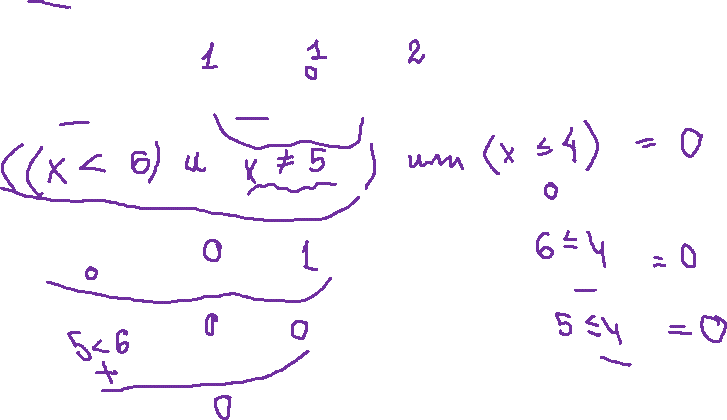 1 1 2
0
((x < 6) и x ≠ 5) или (x ≤ 4) = 0
0
0 0 1 6 ≤ 4 = 0
5<6 0 0 5 ≤ 4 = 0
0